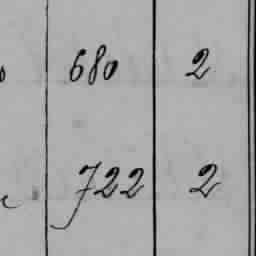 680 2
722 2